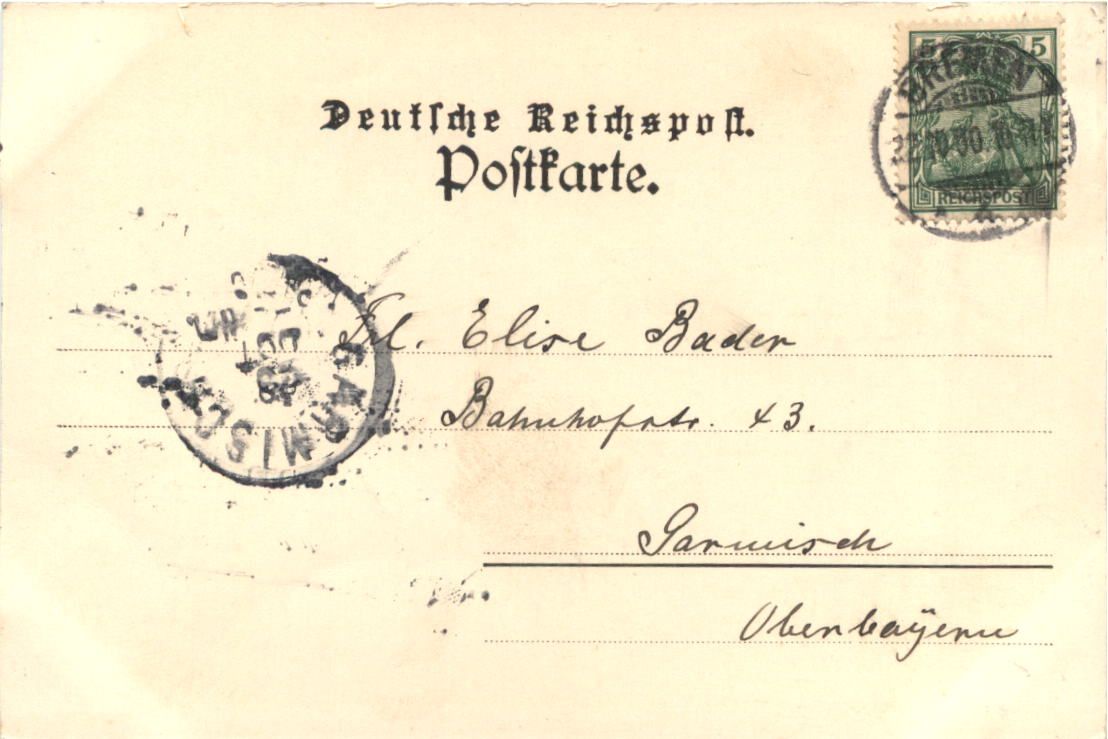 5 5
BREMEN
REICHSPOST
Deutsche Reichspost.
Postkarte.
GARMISCH
OCT
Frl. Elise Bader
Bahnhofstr. 43.
Garmisch
Oberbayern